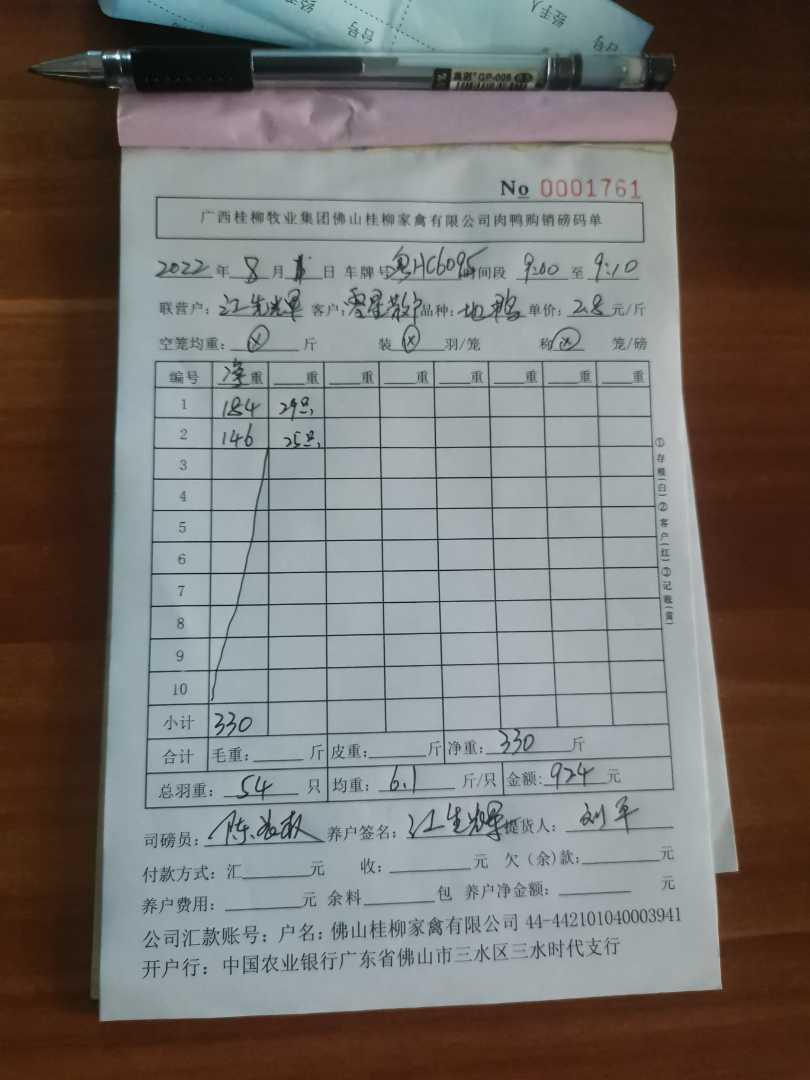 经手人
台号
台号
GP-008
No 0001761
广西桂柳牧业集团佛山桂柳家禽有限公司肉鸭购销磅码单
2022 年 8 月 日 车牌号 粤HC6095 时间段 9:00 至 9:10
联营户: 江先辉 客户: 零星散户 品种: 地鸭 单价: 2.8 元/斤
空笼均重: ⓧ 斤 装 ⓧ 羽/笼 称 ⓧ 笼/磅
编号 净重 重 重 重 重 重 重 重
1 184 29只
2 146 25只
3
4
5
6
7
8
9
10
小计 330
合计 毛重: 斤 皮重: 斤 净重: 330 斤
总羽重: 54 只 均重: 6.1 斤/只 金额: 924 元
司磅员: 陈 养户签名: 江先辉 提货人: 刘军
付款方式: 汇 元 收: 元 欠(余)款: 元
养户费用: 元 余料 包 养户净金额: 元
公司汇款账号: 户名: 佛山桂柳家禽有限公司 44-442101040003941
开户行: 中国农业银行广东省佛山市三水区三水时代支行
①存根(白)②客户(红)③记账(黄)